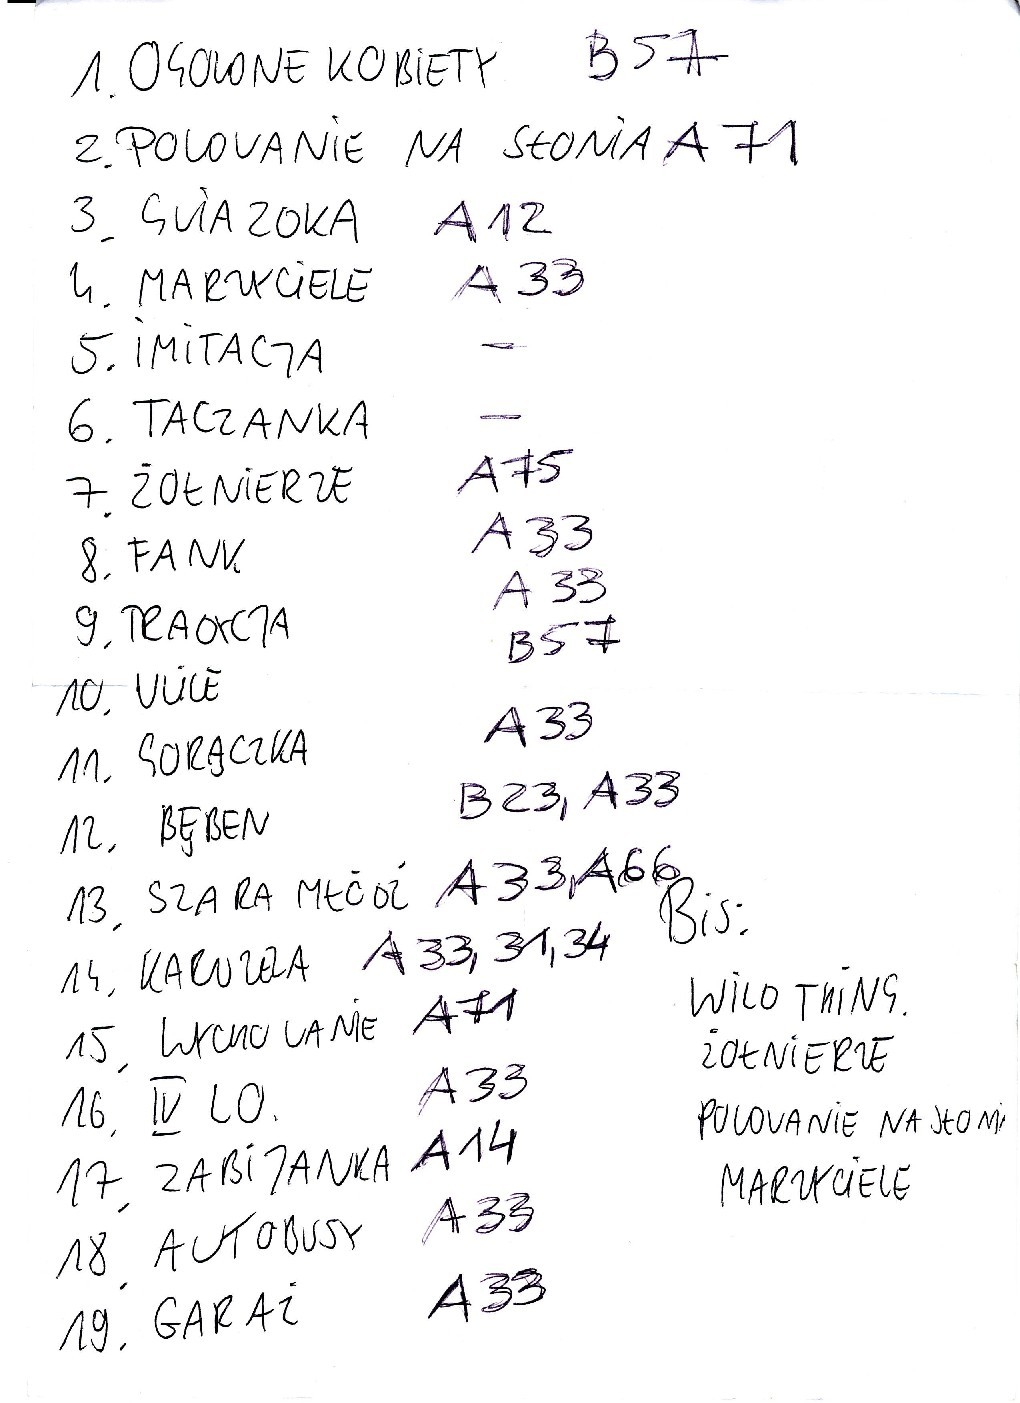 1. OGOLONE KOBIETY B57
2. POLOWANIE NA SŁONIA A71
3. GWIAZDKA A12
4. MARZYCIELE A33
5. IMITACJA -
6. TACZANKA -
7. ŻOŁNIERZE A75
8. FANK A33
9. TRADYCJA A33
10. ULICE B57
11. GORĄCZKA A33
12. BĘBEN B23, A33
13. SZARA MŁÓDŹ A33, A66
14. KARUZELA A33, 31, 34
15. WYCHOWANIE A71
16. IV LO. A33
17. ZABIJANKA A14
18. AUTOBUSY A33
19. GARAŻ A33
Bis:
WILD THING.
ŻOŁNIERZE
POLOWANIE NA SŁONI
MARZYCIELE